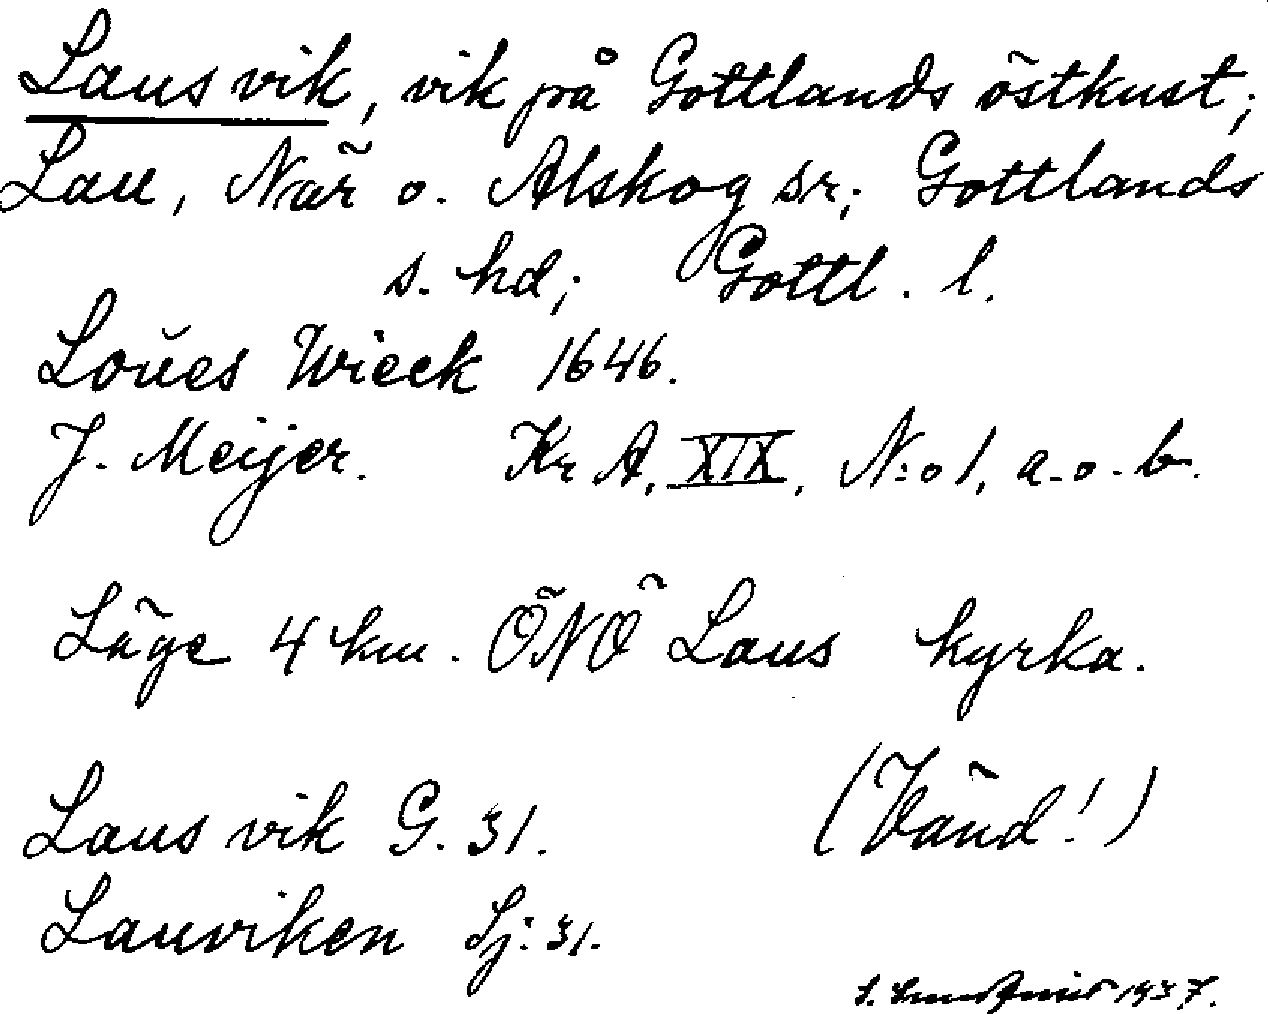 Laus vik, vik på Gottlands östkust;
Lau, När o. Alskog sr; Gottlands
s. hd; Gottl. l.
Loŭes Wieck 1646.
J. Meijer. Kr A, XIX, N:o 1, a.o.b.
Läge 4 km. ÖNÖ Laus kyrka.
Laus vik G. 31. (Vänd!)
Lauviken Sj: 31.
1937.